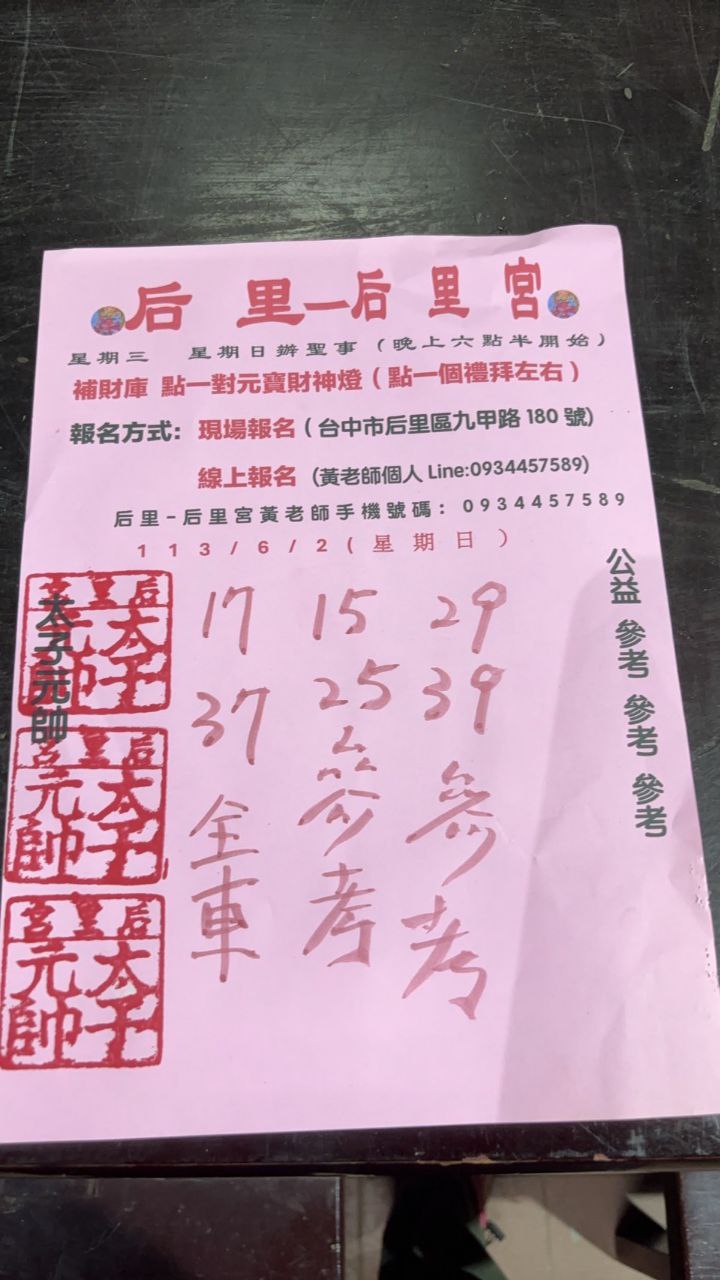 后里一后里宮
星期三 星期日辦聖事(晚上六點半開始)
補財庫 點一對元寶財神燈(點一個禮拜左右)
報名方式: 現場報名(台中市后里區九甲路 180 號)
線上報名 (黃老師個人 Line:0934457589)
后里-后里宮黃老師手機號碼: 0934457589
113/6/2(星期日)
公益 參考 參考 參考
太子元帥
后里宮
太子
元帥
后里宮
太子
元帥
后里宮
太子
元帥
17 15 29
37 25 39
全車 參考 參考